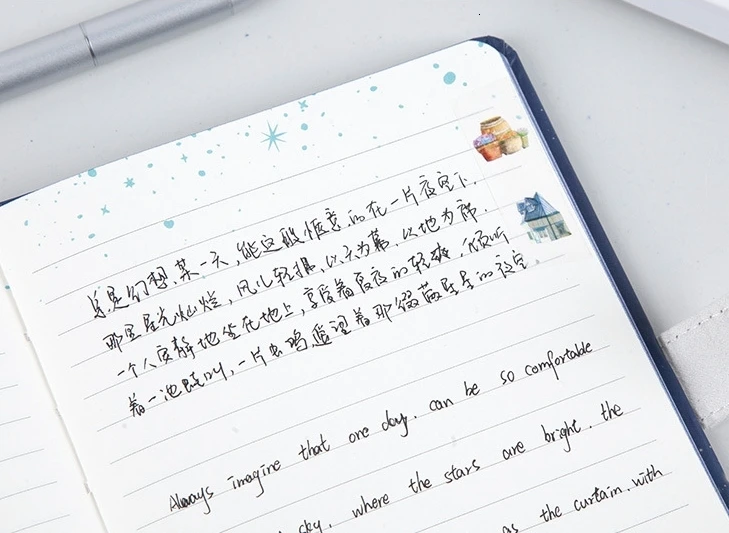 总是幻想,某一天,能这般惬意的在一片夜空下,
那里星光灿烂,风儿轻摇,以天为幕,以地为席,
一个人安静地坐在地上,享受着夏夜的轻爽,倾听
着一池蛙叫,一片虫鸣,遥望着那缀满星星的夜空。
Always imagine that one day, can be so comfortable
sky, where the stars are bright, the
as the curtain, with